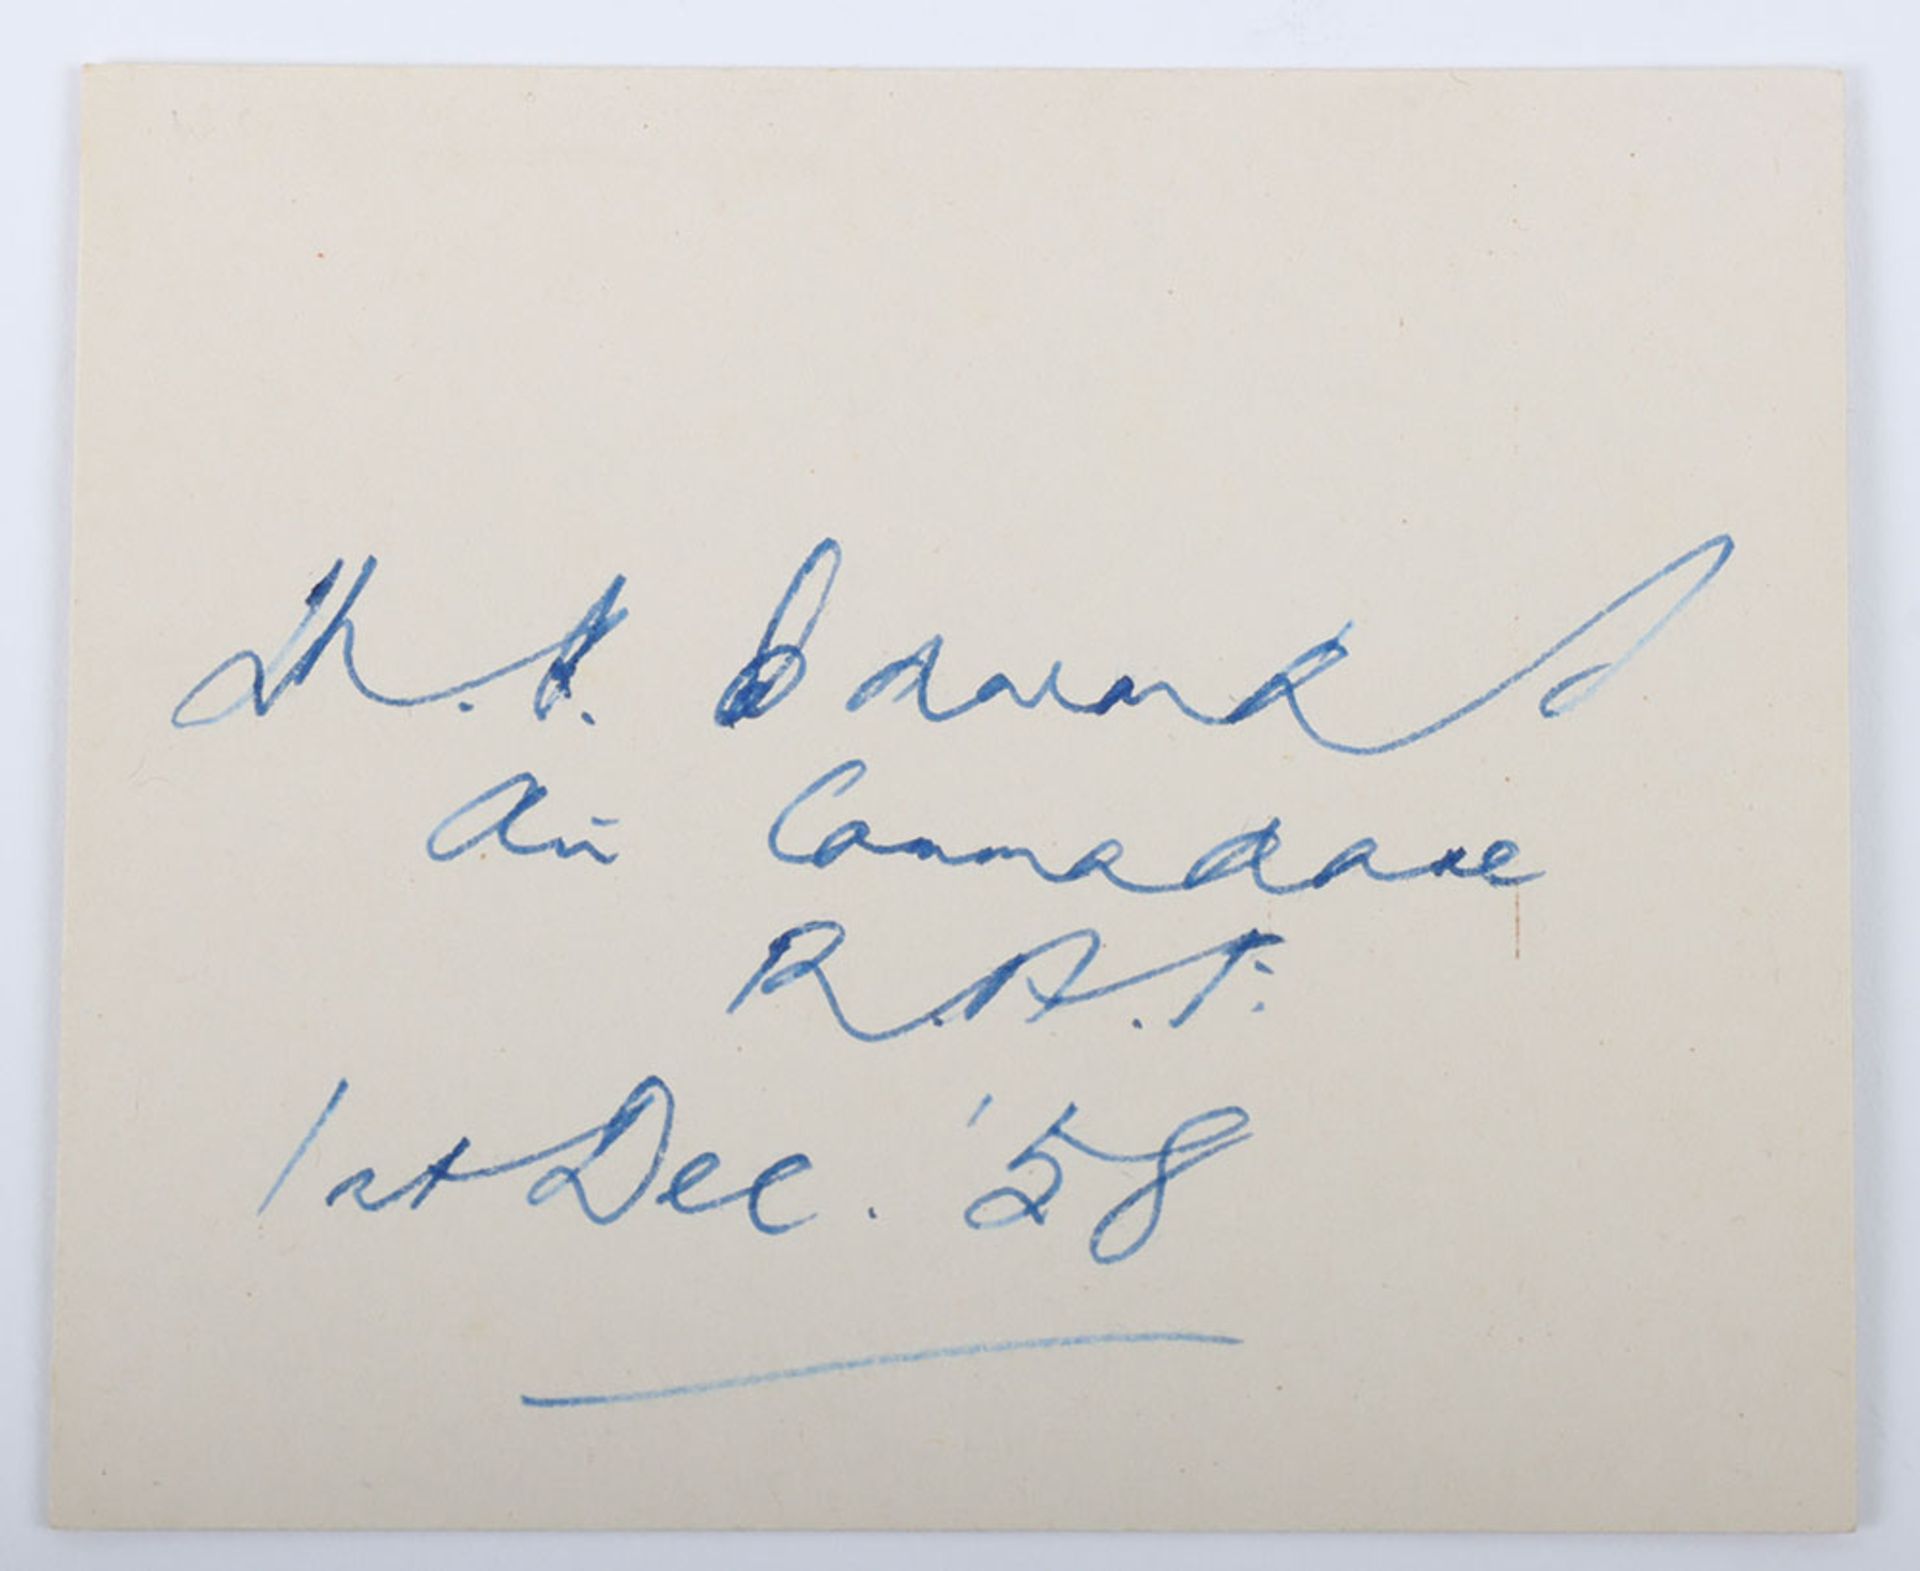 H. I. Edwards
Air Commodore
R.A.F.
1st Dec. '58